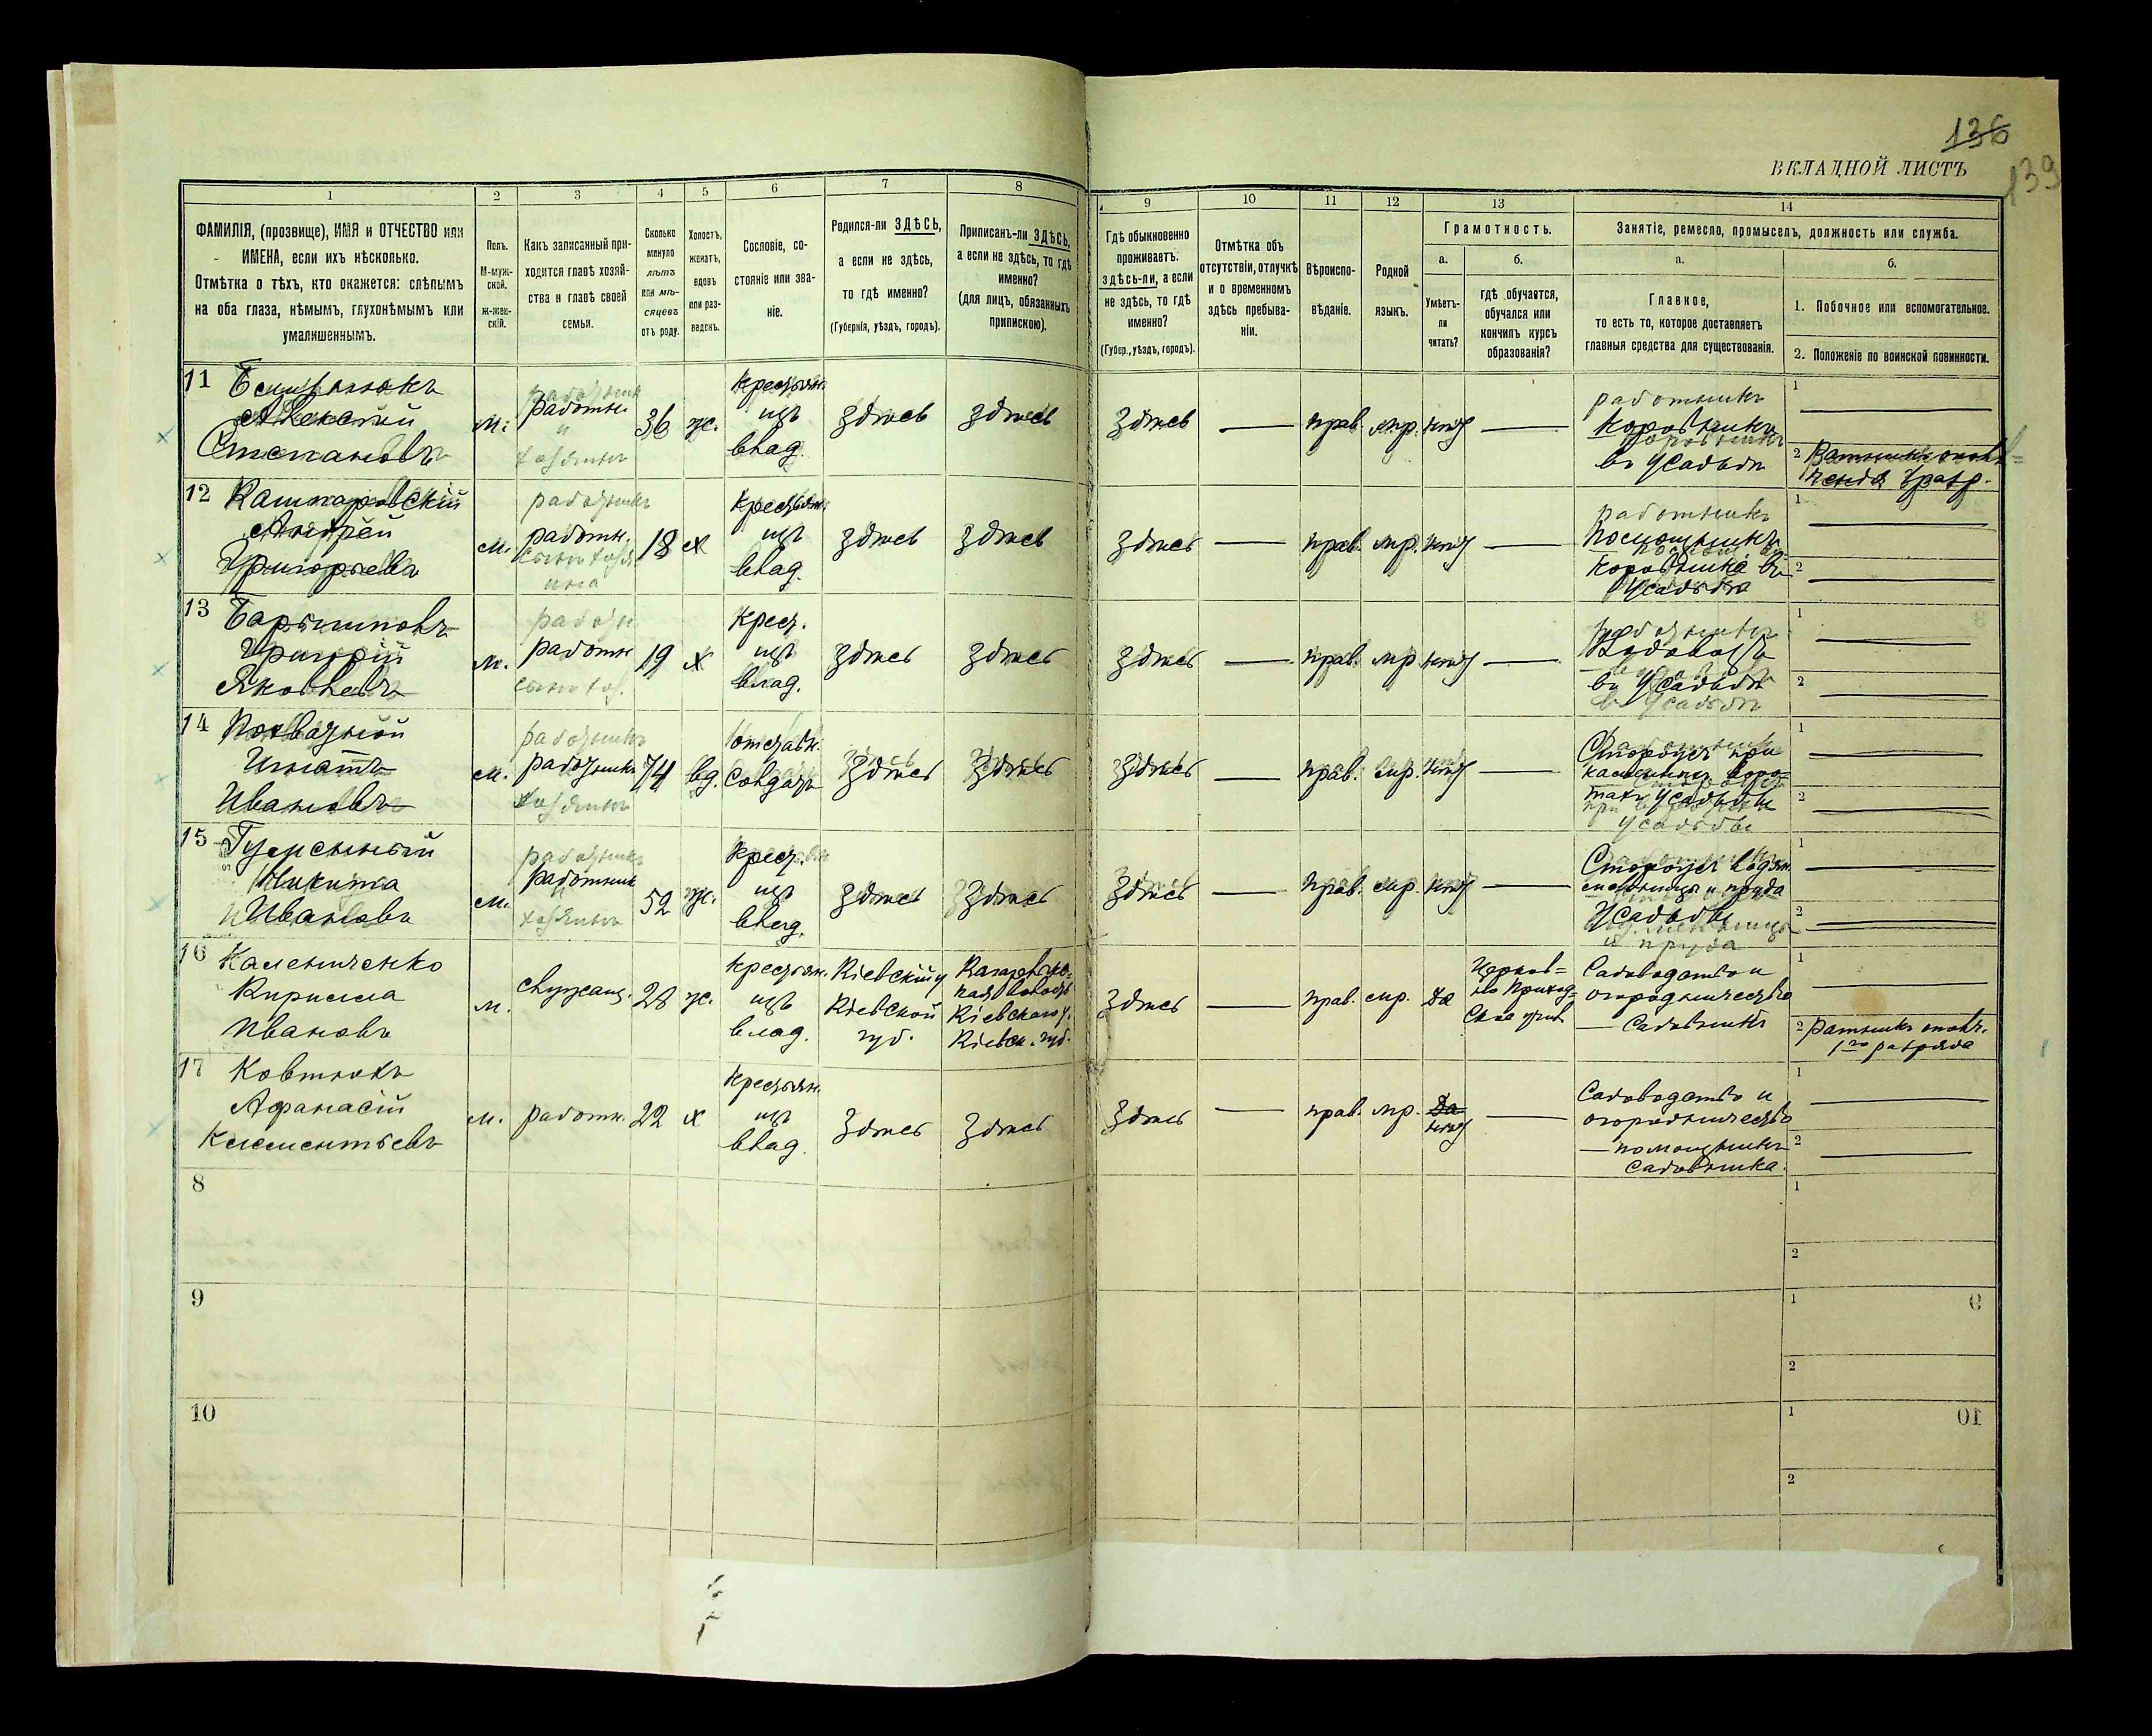 136
139
ВКЛАДНОЙ ЛИСТЪ
1
2
3
4
5
6
7
8
9
10
11
12
13
14
ФАМИЛІЯ, (прозвище), ИМЯ и ОТЧЕСТВО или
ИМЕНА, если ихъ нѣсколько.
Отмѣтка о тѣхъ, кто окажется: слѣпымъ
на оба глаза, нѣмымъ, глухонѣмымъ или
умалишеннымъ.
Полъ.
М-муж-
ской.
ж-жен-
скій.
Какъ записанный при-
ходится главѣ хозяй-
ства и главѣ своей
семьи.
Сколько
минуло
лѣтъ
или мѣ-
сяцевъ
отъ роду.
Холостъ,
женатъ,
вдовъ
или раз-
веденъ.
Сословіе, со-
стояніе или зва-
ніе.
Родился-ли ЗДѢСЬ,
а если не здѣсь,
то гдѣ именно?
(Губернія, уѣздъ, городъ).
Приписанъ-ли ЗДѢСЬ,
а если не здѣсь, то гдѣ
именно?
(для лицъ, обязанныхъ
припискою).
Гдѣ обыкновенно
проживаетъ:
здѣсь-ли, а если
не здѣсь, то гдѣ
именно?
(Губер., уѣздъ, городъ).
Отмѣтка объ
отсутствіи, отлучкѣ
и о временномъ
здѣсь пребыва-
ніи.
Вѣроиспо-
вѣданіе.
Родной
языкъ.
Грамотность.
а.
Умѣетъ-
ли
читать?
б.
гдѣ обучается,
обучался или
кончилъ курсъ
образованія?
Занятіе, ремесло, промыселъ, должность или служба.
а.
Главное,
то есть то, которое доставляетъ
главныя средства для существованія.
б.
1. Побочное или вспомогательное.
2. Положеніе по воинской повинности.
11
Алексѣй
Степановъ
м.
работн.
36
ж.
крестьян.
изъ
влад.
здѣсь
здѣсь
здѣсь
—
прав.
мр.
нѣтъ
—
работникъ
коровникъ
въ усадьбѣ
1
2 Ратникъ ополч-
ченія 1 разр.
12 Каштаровскій
Андрей
Григорьевъ
м.
работникъ
работн.
18
х
крестьян.
изъ
влад.
здѣсь
здѣсь
здѣсь
—
прав.
мр.
нѣтъ
—
работникъ
Помощникъ
коровника въ
усадьбѣ
1
2
13
Григорій
Яковлевъ
м.
работн
19
х
крест.
изъ
влад.
здѣсь
здѣсь
здѣсь
—
прав.
мр
нѣтъ
—
работникъ
Водовозъ
въ усадьбѣ
1
2
14
Игнатъ
Ивановъ
м.
работникъ
74
вд.
отставн.
солдатъ
здѣсь
здѣсь
здѣсь
—
прав.
мр.
нѣтъ
—
Сторожъ при
усадьбы
1
2
15
Никита
Ивановъ
м.
работникъ
хозяинъ
52
ж.
крест.
изъ
влад.
здѣсь
здѣсь
здѣсь
—
прав.
мр.
нѣтъ
—
Сторожъ водян.
мельницы и пруда
усадьбы
1
2
16 Калениченко
Кирилла
Ивановъ
м.
служащ.
28
ж.
крестьян.
изъ
влад.
Кіевскій у
Кіевской
губ.
Кіевскаго у.
Кіевск. губ.
здѣсь
—
прав.
мр.
да
Церков-
но Приход-
ское учил
Садоводство и
огородничество
— Садовникъ
1
2 Ратникъ ополч.
1го разряда
17 Ковтюхъ
Афанасій
Климентьевъ
м.
работн.
22
х
крестьян.
изъ
влад.
здѣсь
здѣсь
здѣсь
—
прав.
мр.
да
нѣтъ
—
Садоводство и
огородничество
— помощникъ
садовника.
1
2
8
1
2
9
1
2
10
1
2